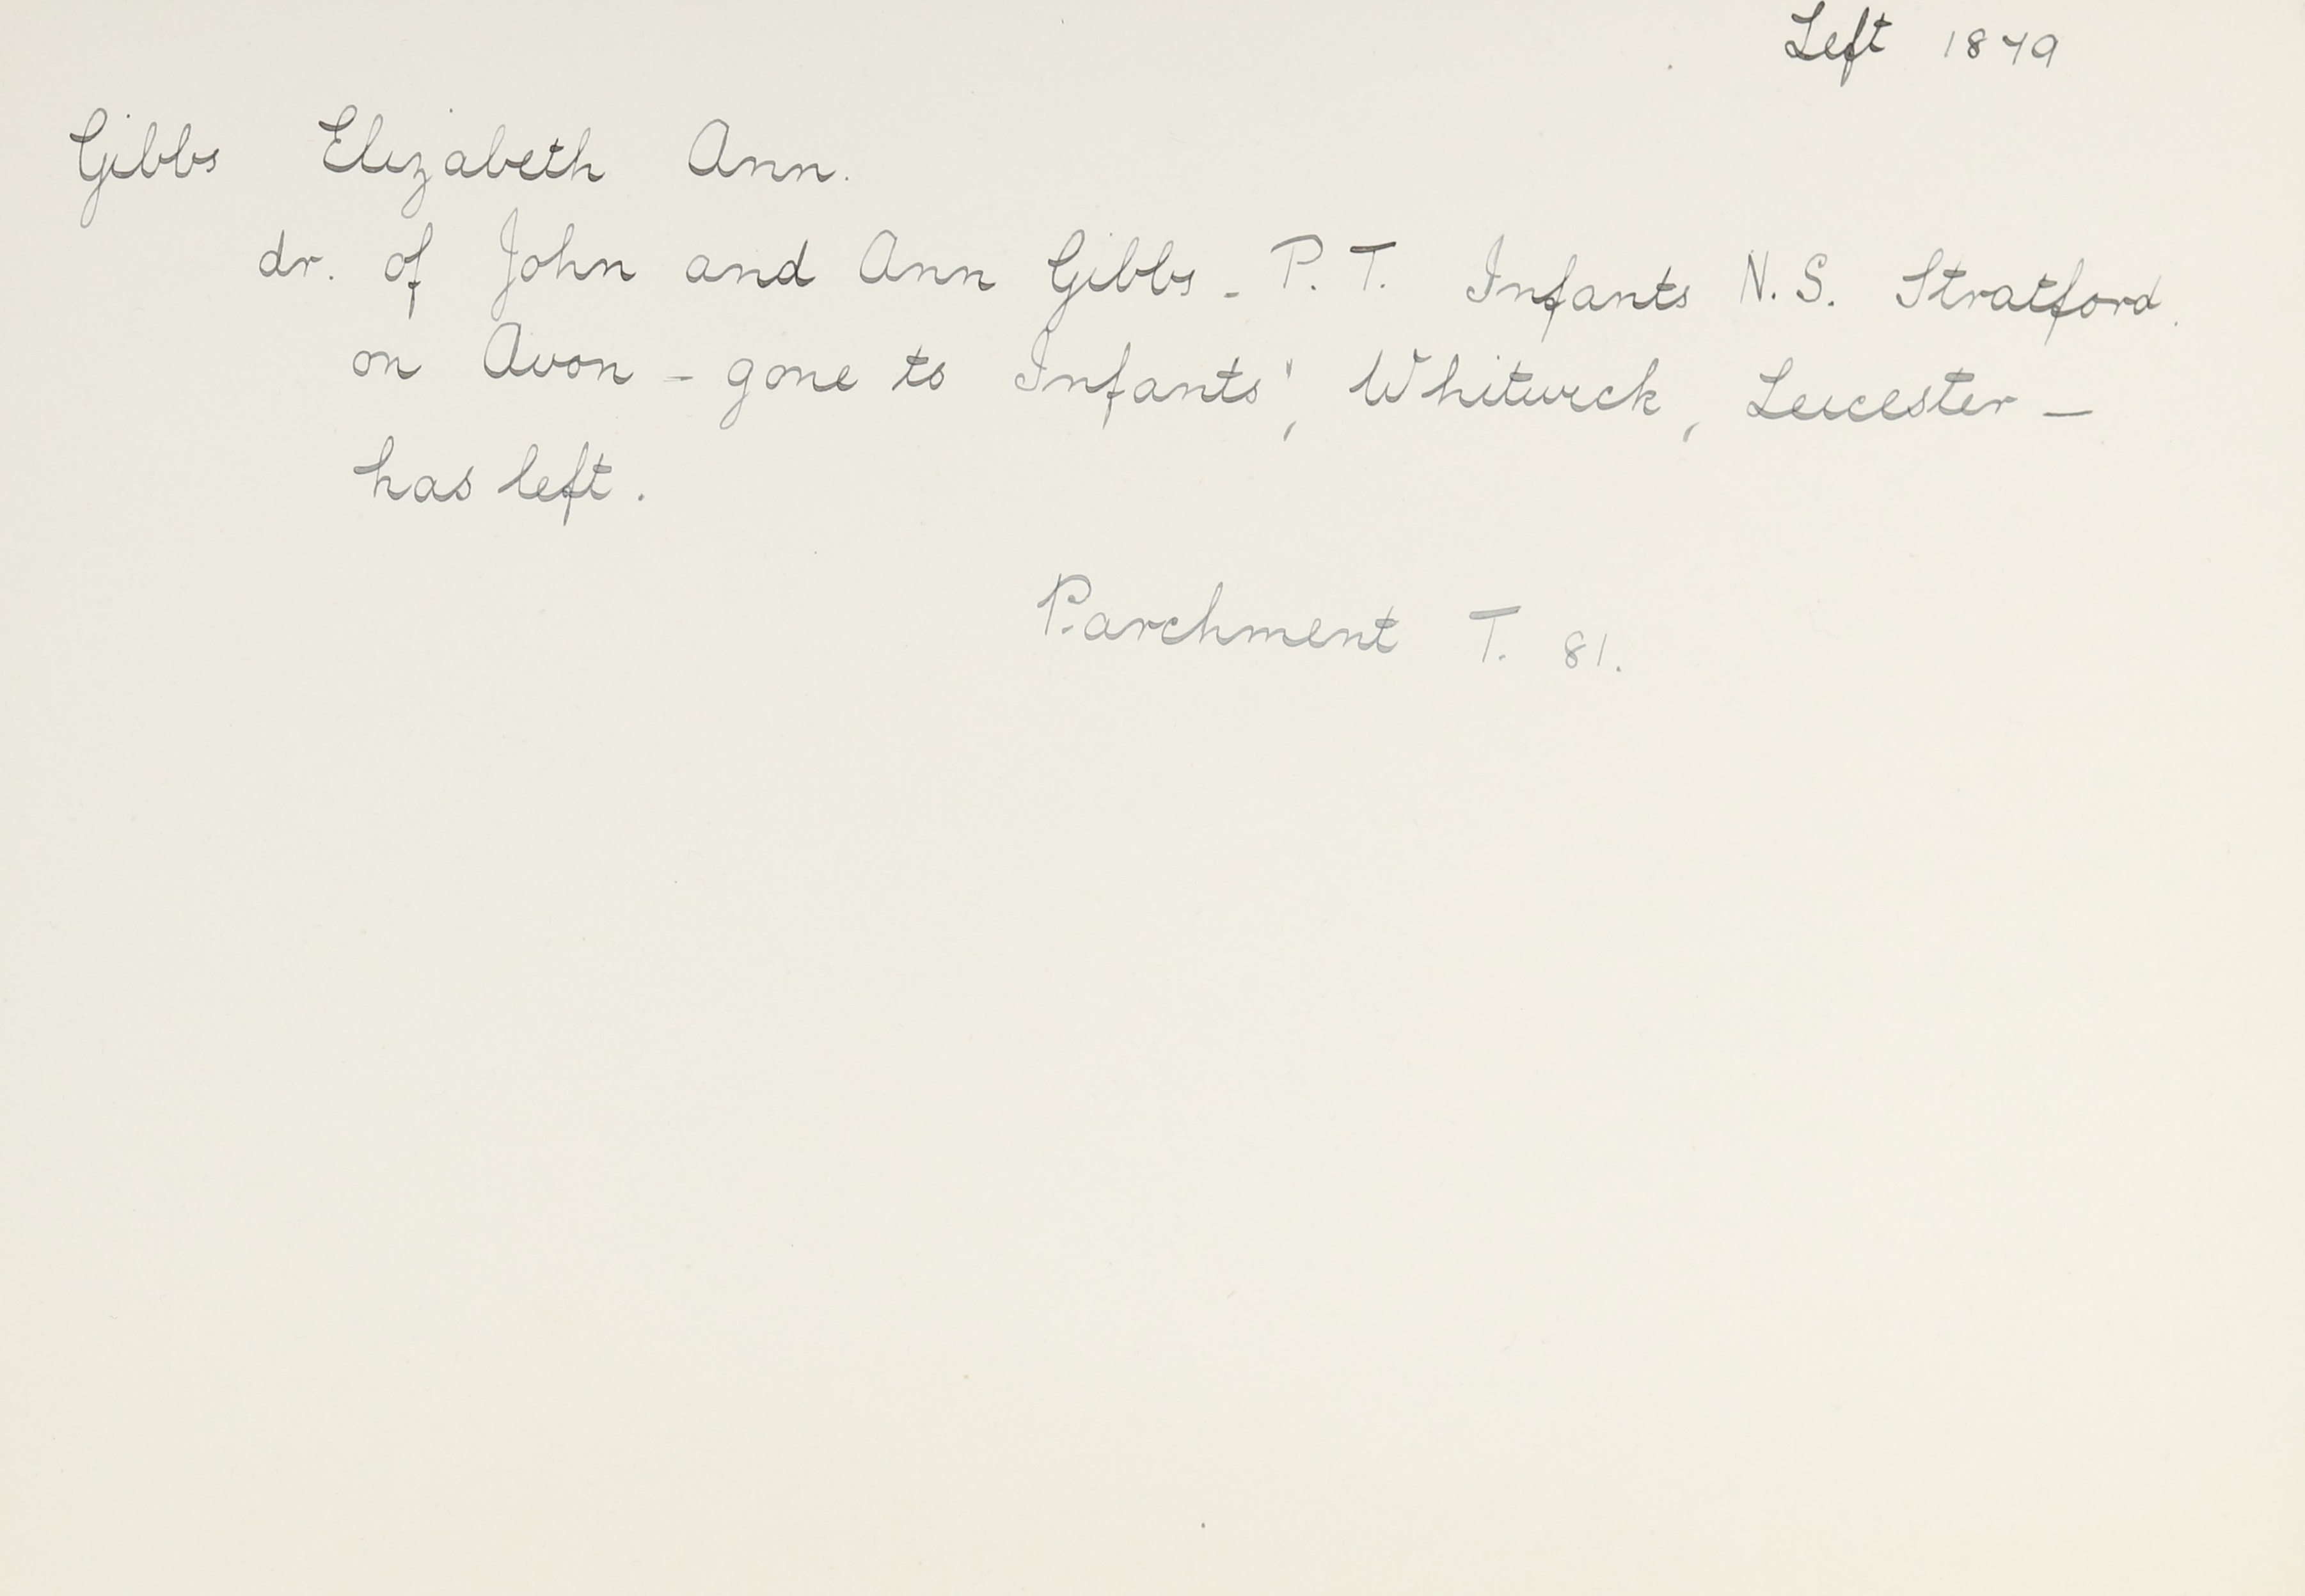 Left 1879
Gibbs Elizabeth Ann.
dr. of John and Ann Gibbs - P.T. Infants N.S. Stratford.
on Avon - gone to Infants', Whitwick, Leicester —
has left.
Parchment T. 81.